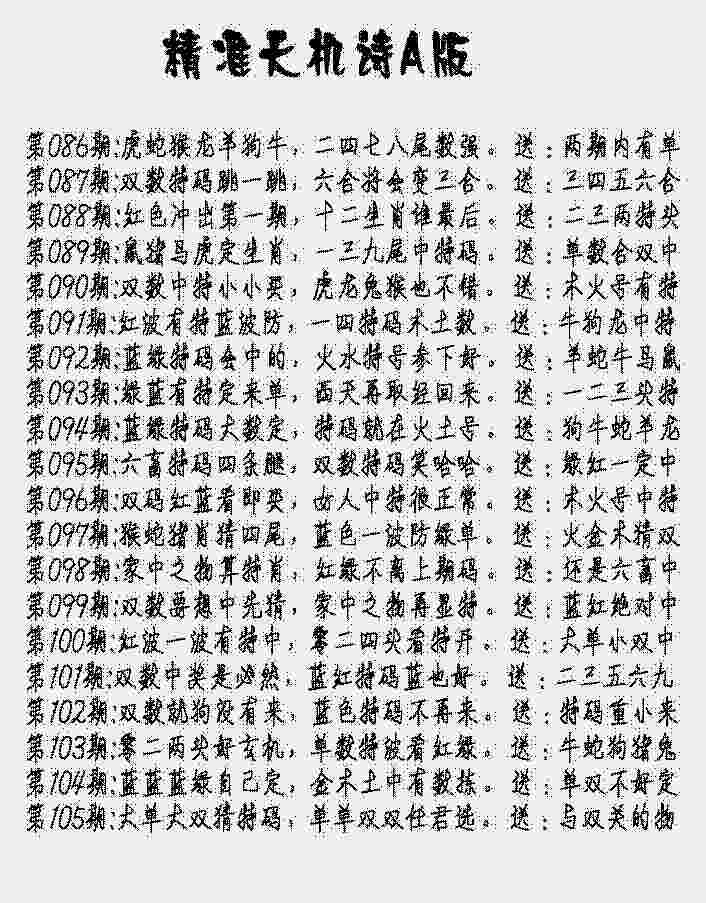 精准天机诗A版
第086期:虎蛇猴龙羊狗牛，二四七八尾数强。送：两期内有单
第087期:双数特码跳一跳，六合将会变三合。送：三四五六合
第088期:红色冲出第一期，十二生肖谁最后。送：二三两特头
第089期:鼠猪马虎定生肖，一三九尾中特码。送：单数合双中
第090期:双数中特小小买，虎龙兔猴也不错。送：木火号有特
第091期:红波有特蓝波防，一四特码木土数。送：牛狗龙中特
第092期:蓝绿特码会中的，火水特号参下好。送：羊蛇牛马鼠
第093期:绿蓝有特定来单，西天再取经回来。送：一二三头特
第094期:蓝绿特码大数定，特码就在火土号。送：狗牛蛇羊龙
第095期:六畜特码四条腿，双数特码笑哈哈。送：绿红一定中
第096期:双码红蓝看即买，女人中特很正常。送：木火号中特
第097期:猴蛇猪肖猜四尾，蓝色一波防绿单。送：火金木猜双
第098期:家中之物算特肖，红绿不离上期码。送：还是六畜中
第099期:双数要想中先猜，家中之物再显特。送：蓝红绝对中
第100期:红波一波有特中，零二四头看特开。送：大单小双中
第101期:双数中奖是必然，蓝红特码蓝也好。送：二三五六九
第102期:双数就狗没有来，蓝色特码不再来。送：特码重小来
第103期:零二两头好玄机，单数特波看红绿。送：牛蛇狗猪兔
第104期:蓝蓝蓝绿自己定，金木土中有数拣。送：单双不好定
第105期:大单大双猜特码，单单双双任君选。送：与双关的物